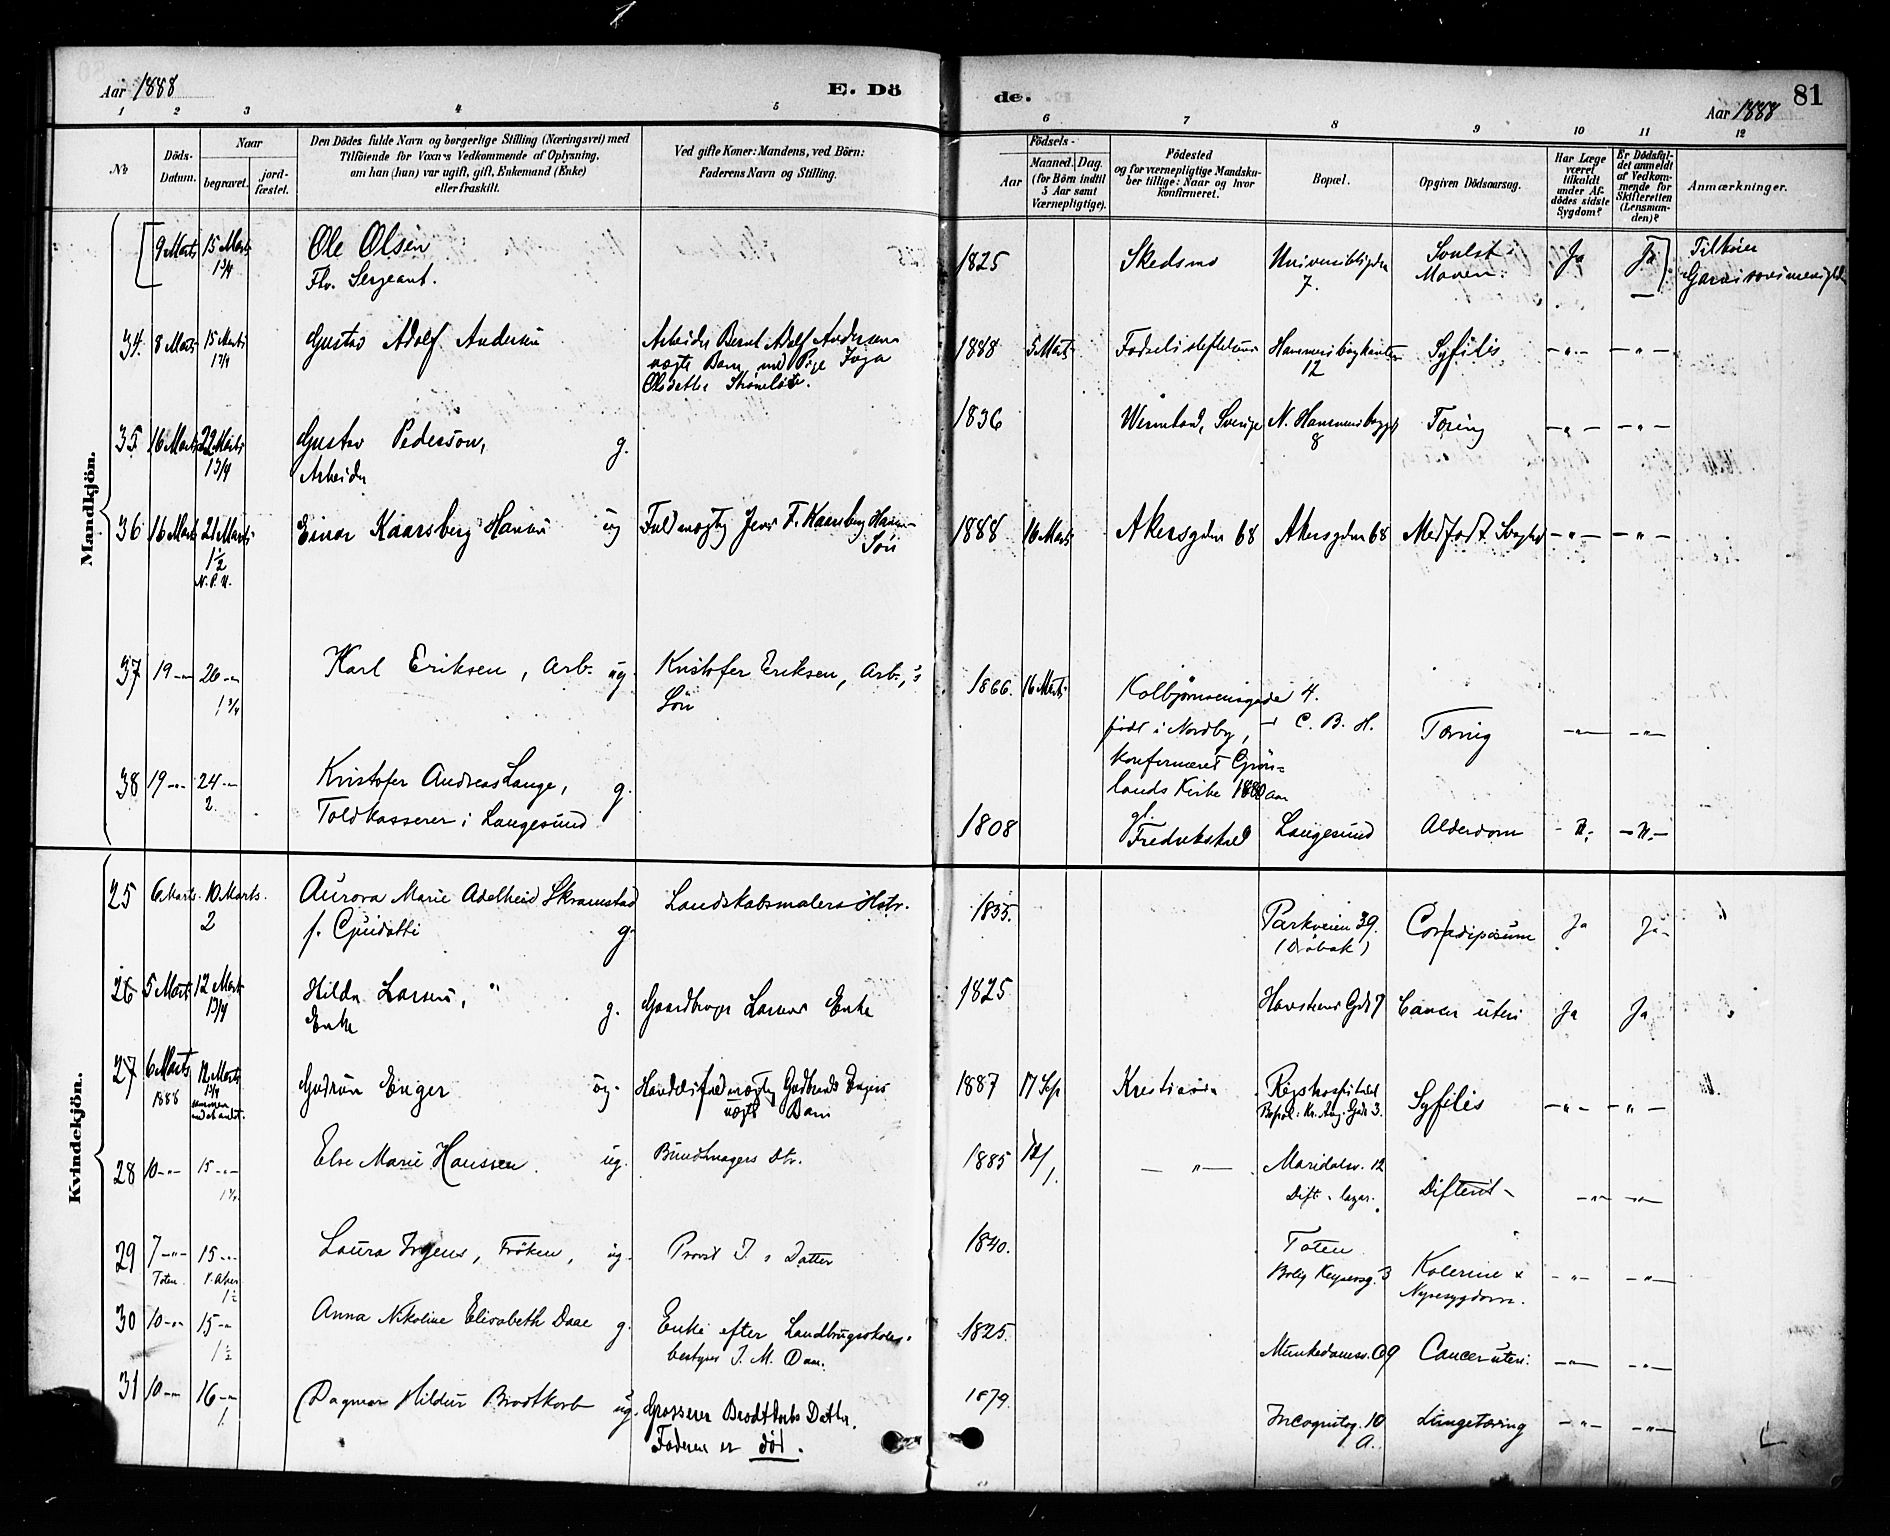 Aar 1888
E. Dö
de.
Aar 1888
81
1 2 3 4 5 6 7 8 9 10 11 12
No
Döds-Datum.
Naar
begravet.
jord-fæstet.
Den Dödes fulde Navn og borgerlige Stilling (Næringsvei) med
Tilföiende for Voxn's Vedkommende af Oplysning,
om han (hun) var ugift, gift, Enkemand (Enke)
eller fraskilt.
Ved gifte Koner: Mandens, ved Börn:
Faderens Navn og Stilling.
Födsels-
Aar
Maaned. Dag.
(for Börn indtil
5 Aar samt
Værnepligtige).
Födested
og for værnepligtige Mandska-
ber tillige: Naar og hvor
konfirmeret.
Bopæl.
Opgiven Dödsaarsag.
Har Læge
været
tilkaldt
under Af-
dödes sidste
Sygdom?
Er Dödsfal-
det anmeldt
af Vedkom-
mende for
Skifteretten
(Lensman-
den)?
Anmærkninger.
Mandkjön.
9 Marts 15 Marts Ole Olsen 1825 Skedsmo 7. Ja Ja Tilhører
1 3/4 Fhv. Sergeant.
34. 8 Marts 15 Marts Gustav Adolf Andersen Arbeider Bernt Adolf Andersens 1888 5 Marts Fødselsstiftelsen Hammersborgkanten Syfilis -"- -"-
1 3/4 uægte Barn med Pige Inga 12
Olsdatter
35 16 Marts 22 Marts Gustav Pederson, g. 1836 Wermland, Sverige N. Hammersborggd Tæring -"- -"-
1 3/4 Arbeider 8
36 16 Marts 21 Marts Einar Kaarsberg Hansen ug Fuldmægtig Jens F. Kaarsberg Hansens 1888 16 Marts Akersgaden 68 Akersgaden 68 Medfødt Svaghed -"- -"-
1 1/2 Søn
37 19 -"- 26 -"- Karl Eriksen, Arb. ug. Kristofer Eriksen, Arb.,'s 1866. 16 Marts Kolbjørnsensgade 4.
1 3/4 Søn født i Nordby, C. B. H. Tæring -"- -"-
konfirmeret Grøn-
lands Kirke 1880
38 19 -"- 24 -"- Kristofer Andreas Lange, g.
2. Toldkasserer i Langesund 1808 Fredrikshald Langesund Alderdom -"- -"-
Kvindekjön.
25 6 Marts. 10 Marts. Aurora Marie Adelheid Skramstad Landskabsmalers Hstr. 1835. Parkveien 39. Cor adiposum Ja Ja
2 f. Guidotti g. (Drøbak)
26 5 Marts 12 Marts Hilda Larsen, g. Gaardbruger Larsens Enke 1825 7 Cancer uteri Ja Ja
1 3/4 Enke
27 6 Marts 12 Marts Gudrun Enger ug. Handelsfuldmægtig Gudbrands Engers 1887 17 Sep Kristiania Rigshospitalet Syfilis -"- -"-
1888 1 3/4 uægte Barn Bopæl: Kr. Aug. Gade 3.
28 10 -"- 15 -"- Else Marie Hanssen. ug. Buntmagers Dtr. 1885 -"- Maridalsv. 12 Difterit -"- -"-
Dift. lazar.
29 7 -"- 15 -"- Laura Irgens, Frøken, ug. Provst I.s Datter 1840. Toten Kolerine & -"- -"-
Toten. V. Aker Bolig Keysersg. 3 Nyresygdom.
1 1/2
30 10 -"- 15 -"- Anna Nikoline Elisabeth Daae g. Enke efter Landbrugsskole- 1825. Munkedamsv. 69 Cancer uteri. -"- -"-
1 1/2 bestyrer I. M. Daae.
31 10 -"- 16 -"- Dagmar Hildur Brodtkorb ug. Grosserer Brodtkorbs Datter. 1879. Incognitog. 10 Lungetæring -"- -"-
1. Faderen er død. A.